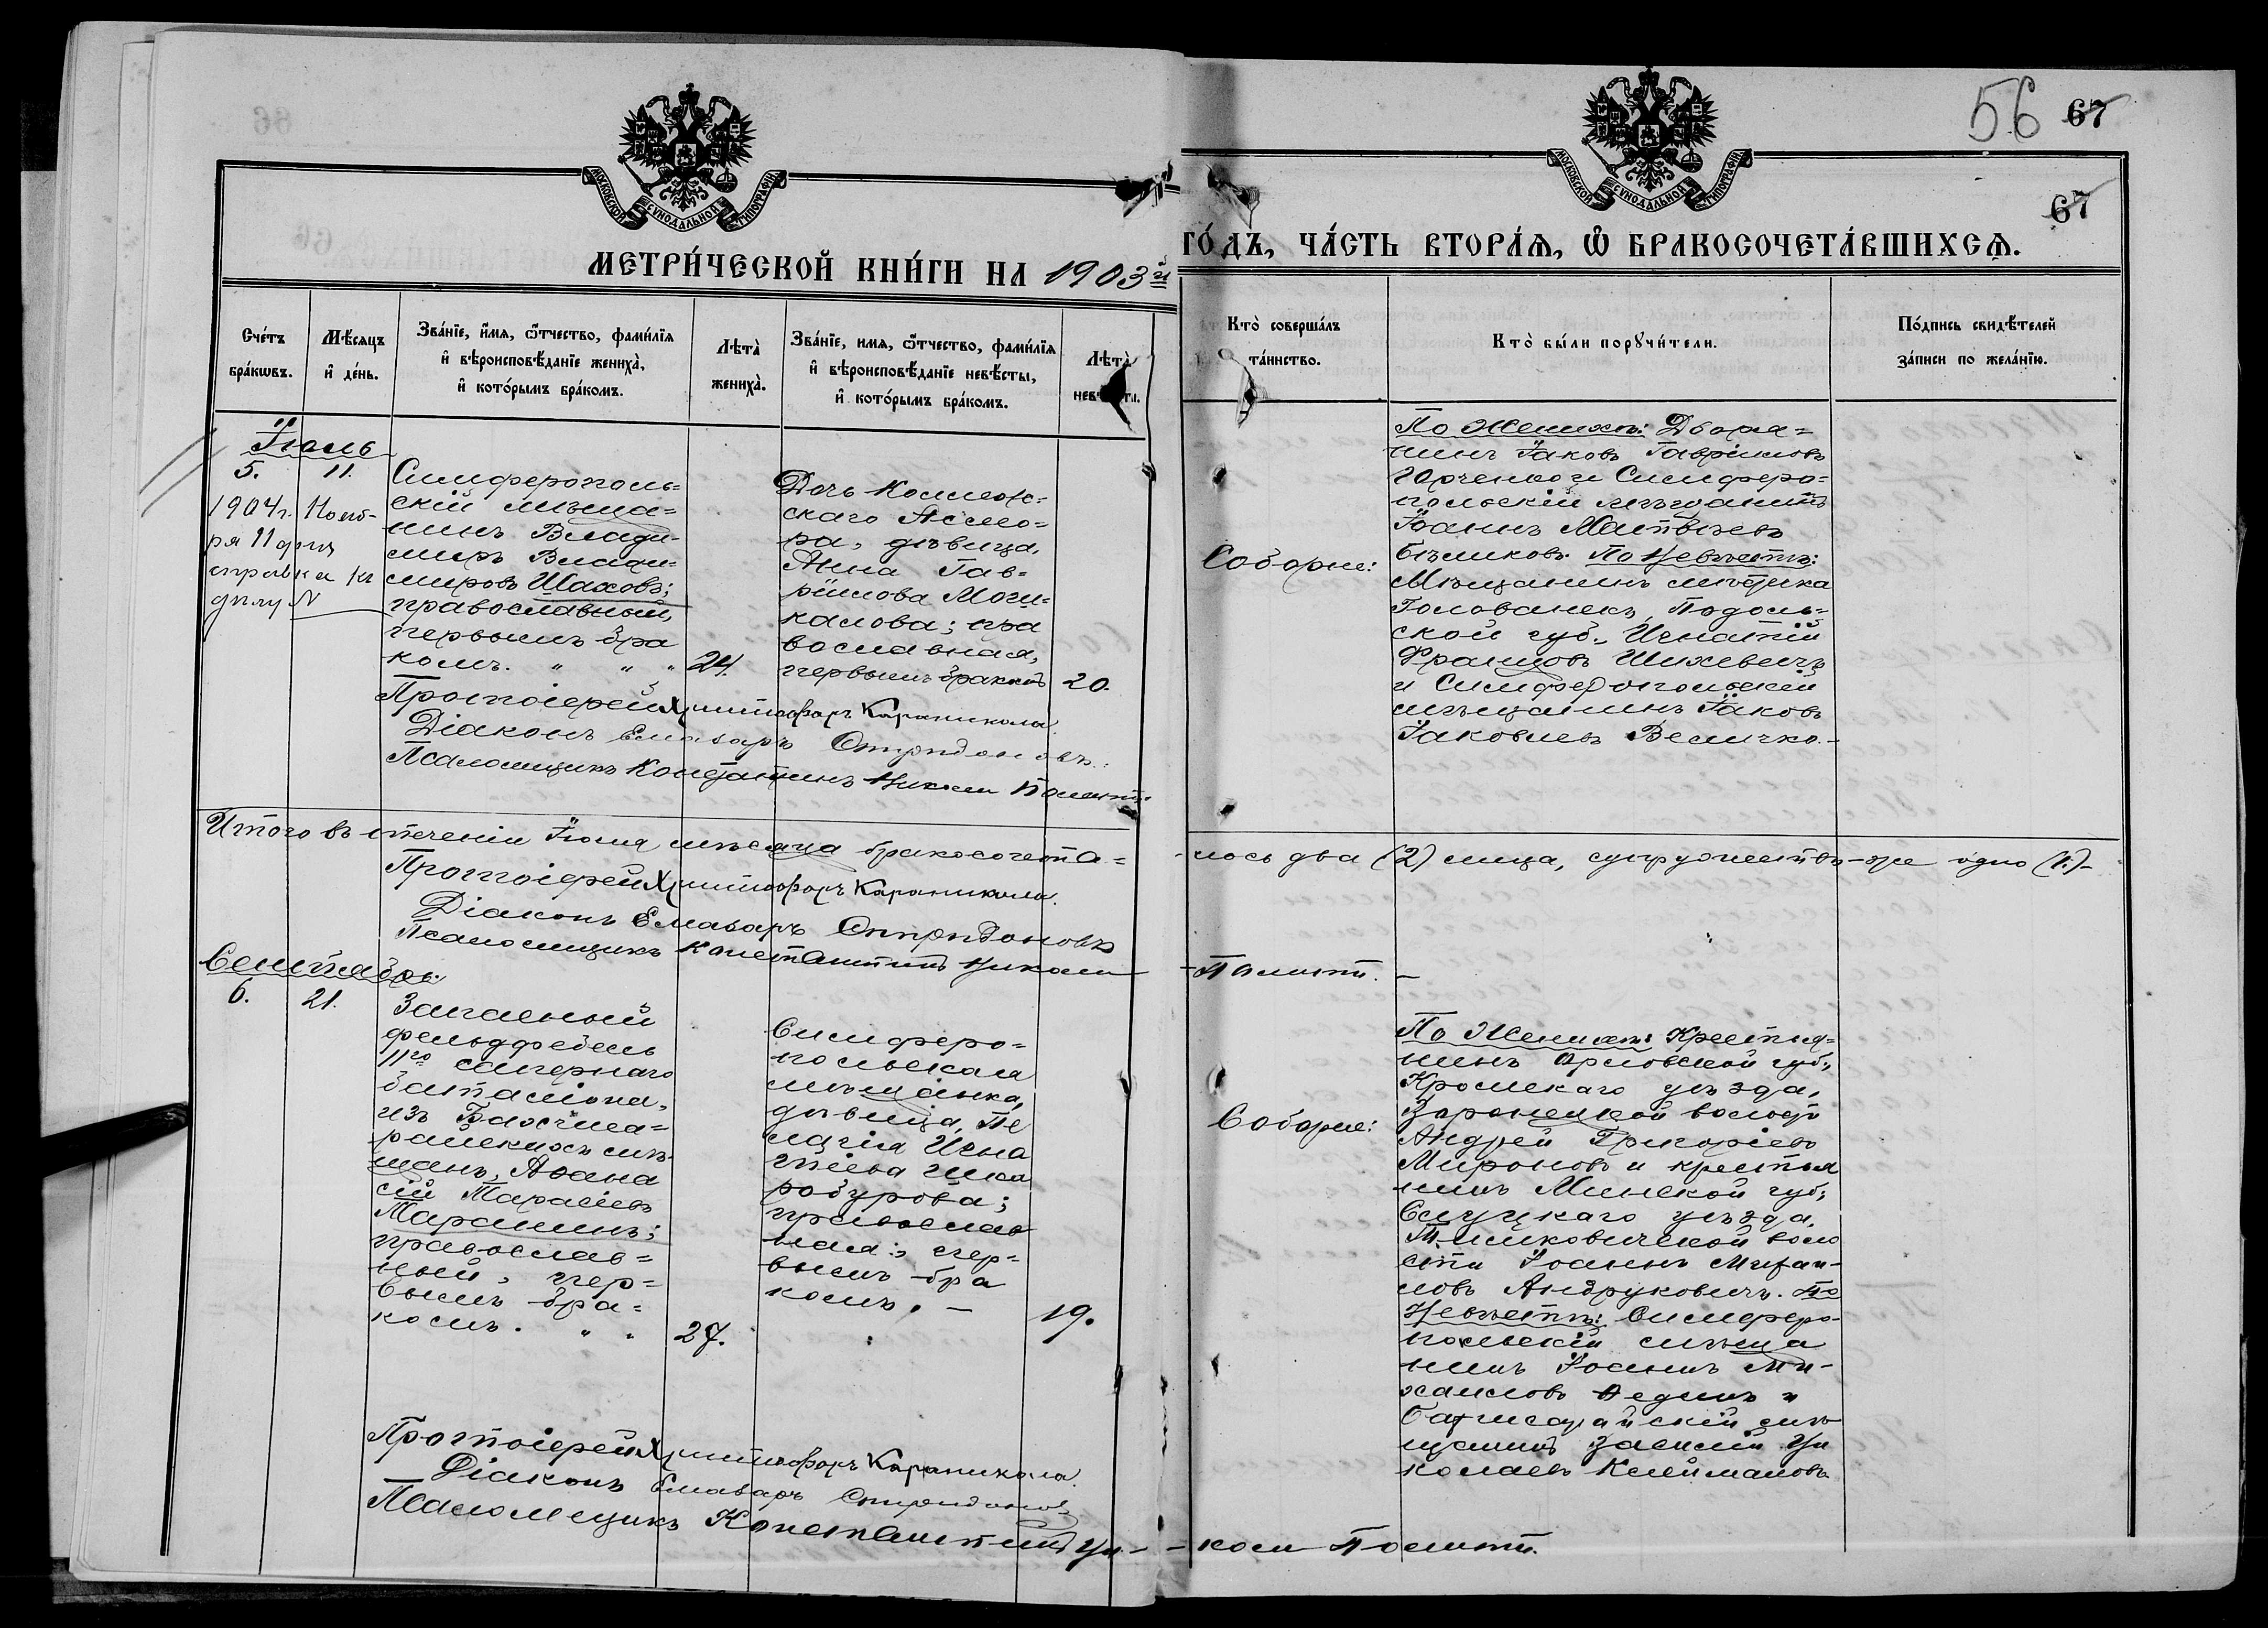 56 67
67
МОСКОВСКОЙ СѴНОДАЛЬНОЙ ТИПОГРАФІИ
МОСКОВСКОЙ СѴНОДАЛЬНОЙ ТИПОГРАФІИ
МЕТРИ́ЧЕСКОЙ КНИ́ГИ НА 1903й ГО́ДЪ, ЧА́СТЬ ВТОРА́Я, Ѡ БРАКОСОЧЕТА́ВШИХСЯ.
Сче́тъ
бра́кѡвъ.
Мѣ́сяцъ
и҆ де́нь.
Зва́нїе, и҆́мя, ѻ҆́тчество, фами́лїя
и҆ вѣроисповѣ́данїе жениха̀,
и҆ кото́рымъ бра́комъ.
Лѣта̀
жениха̀.
Зва́нїе, имя, ѻ҆́тчество, фами́лїя
и҆ вѣроисповѣ́данїе невѣ́сты,
и҆ кото́рымъ бра́комъ.
Лѣта̀
Кто̀ соверша́лъ
та́инство.
Кто̀ бы́ли порꙋчи́тели.
По́дпись свидѣ́телей
за́писи по жела́нїю.
Іюль
5. 11.
1904 г. Нояб-
ря 11 дня
справка къ
дѣлу №
Симферополь=
скій мѣща=
нинъ Влади-
миръ Влади=
міровъ Шаховъ;
православный,
первымъ бра
комъ. " " "
24.
Дочь Коллеж=
скаго Ассесо=
ра, дѣвица,
Анна Гав=
ріилова Моги=
калова; пра
вославная,
первымъ бракомъ
20.
Соборне:
По Женихѣ: Дворя=
нинъ Іаковъ Гавріиловъ
Юрченко и Симферо=
польскій мѣщанинъ
Іоаннъ Матвѣевъ
Бѣликовъ. По Невѣстѣ:
Мѣщанинъ мѣстечка
Голованекъ, Подоль=
ской губ., Игнатій
Францовъ Шихевичъ
и Симферопольскій
мѣщанинъ Іаковъ
Іаковлевъ Величко.-
Протоіерей Христофоръ Караникола.
Діаконъ Елеазаръ Спиридоновъ.
Псаломщикъ Константинъ Никола
Итого въ теченіи Іюля мѣсяца бракосочета=
-лось два (2) лица, супружество-же одно (1).-
Протоіерей Христофоръ Караникола.
Діаконъ Елеазаръ Спиридоновъ
Псаломщикъ Константинъ Никола
Сентябрь.
6. 21.
Запасный
фельдфебель
11го сапернаго
баталіона,
изъ Бахчиса=
райскихъ мѣ-
щанъ, Аѳана
сій Тарасіевъ
Таранинъ;
православ=
ный, пер=
вымъ бра=
комъ. " "
27.
Симферо=
польская
мѣщанка,
дѣвица, Пе
лагія Игна
тіева Шка
робурова;
православ
ная; пер=
вымъ бра
комъ. -
19.
Соборне:
По Женихѣ: Крестья=
нинъ Орловской губ.,
Кромскаго уѣзда,
волости
Андрей Григоріевъ
Мироновъ и крестья
нинъ Минской губ.,
Слуцкаго уѣзда,
воло
сти Іоаннъ Михаи-
ловъ Андруковичъ. По
Невѣстѣ: Симферо-
польскій мѣща
нинъ Іоаннъ Ми-
хаиловъ и
бахчисарайскій мѣ-
щанинъ Ни
колаевъ Клеймановъ
Протоіерей Христофоръ Караникола.
Діаконъ Елеазаръ Спиридоновъ
Псаломщикъ Константинъ Ни-
-кола